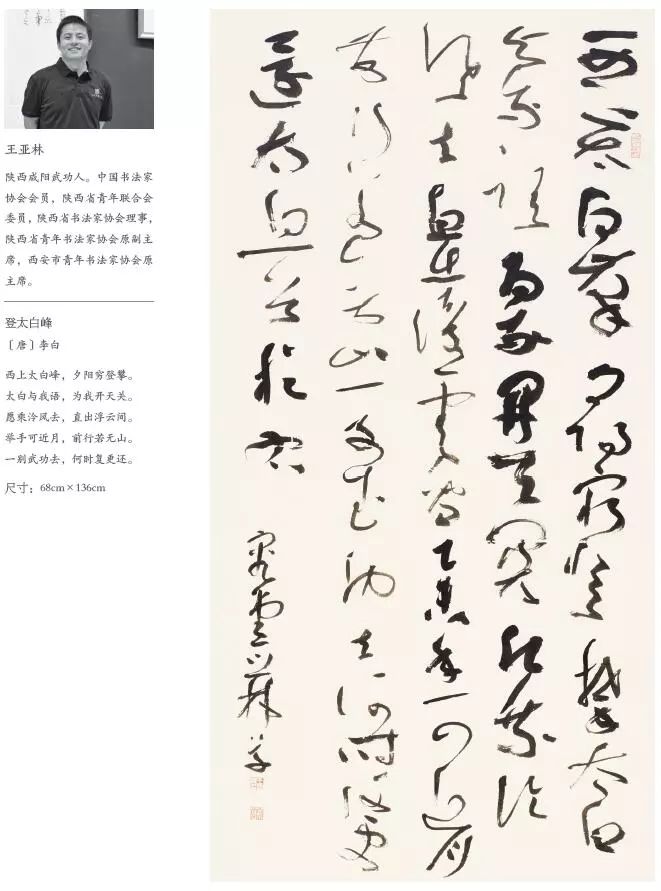 王亚林
陕西咸阳武功人。中国书法家
协会会员，陕西省青年联合会
委员，陕西省书法家协会理事，
陕西省青年书法家协会原副主
席，西安市青年书法家协会原
主席。
登太白峰
［唐］李白
西上太白峰，夕阳穷登攀。
太白与我语，为我开天关。
愿乘泠风去，直出浮云间。
举手可近月，前行若无山。
一别武功去，何时复更还。
尺寸：68cm×136cm
西上太白峰夕陽窮登攀太白
與我語為我開天關願乘泠
風去直出浮雲間舉手可近月
前行若無山一別武功去何時復更
還太白